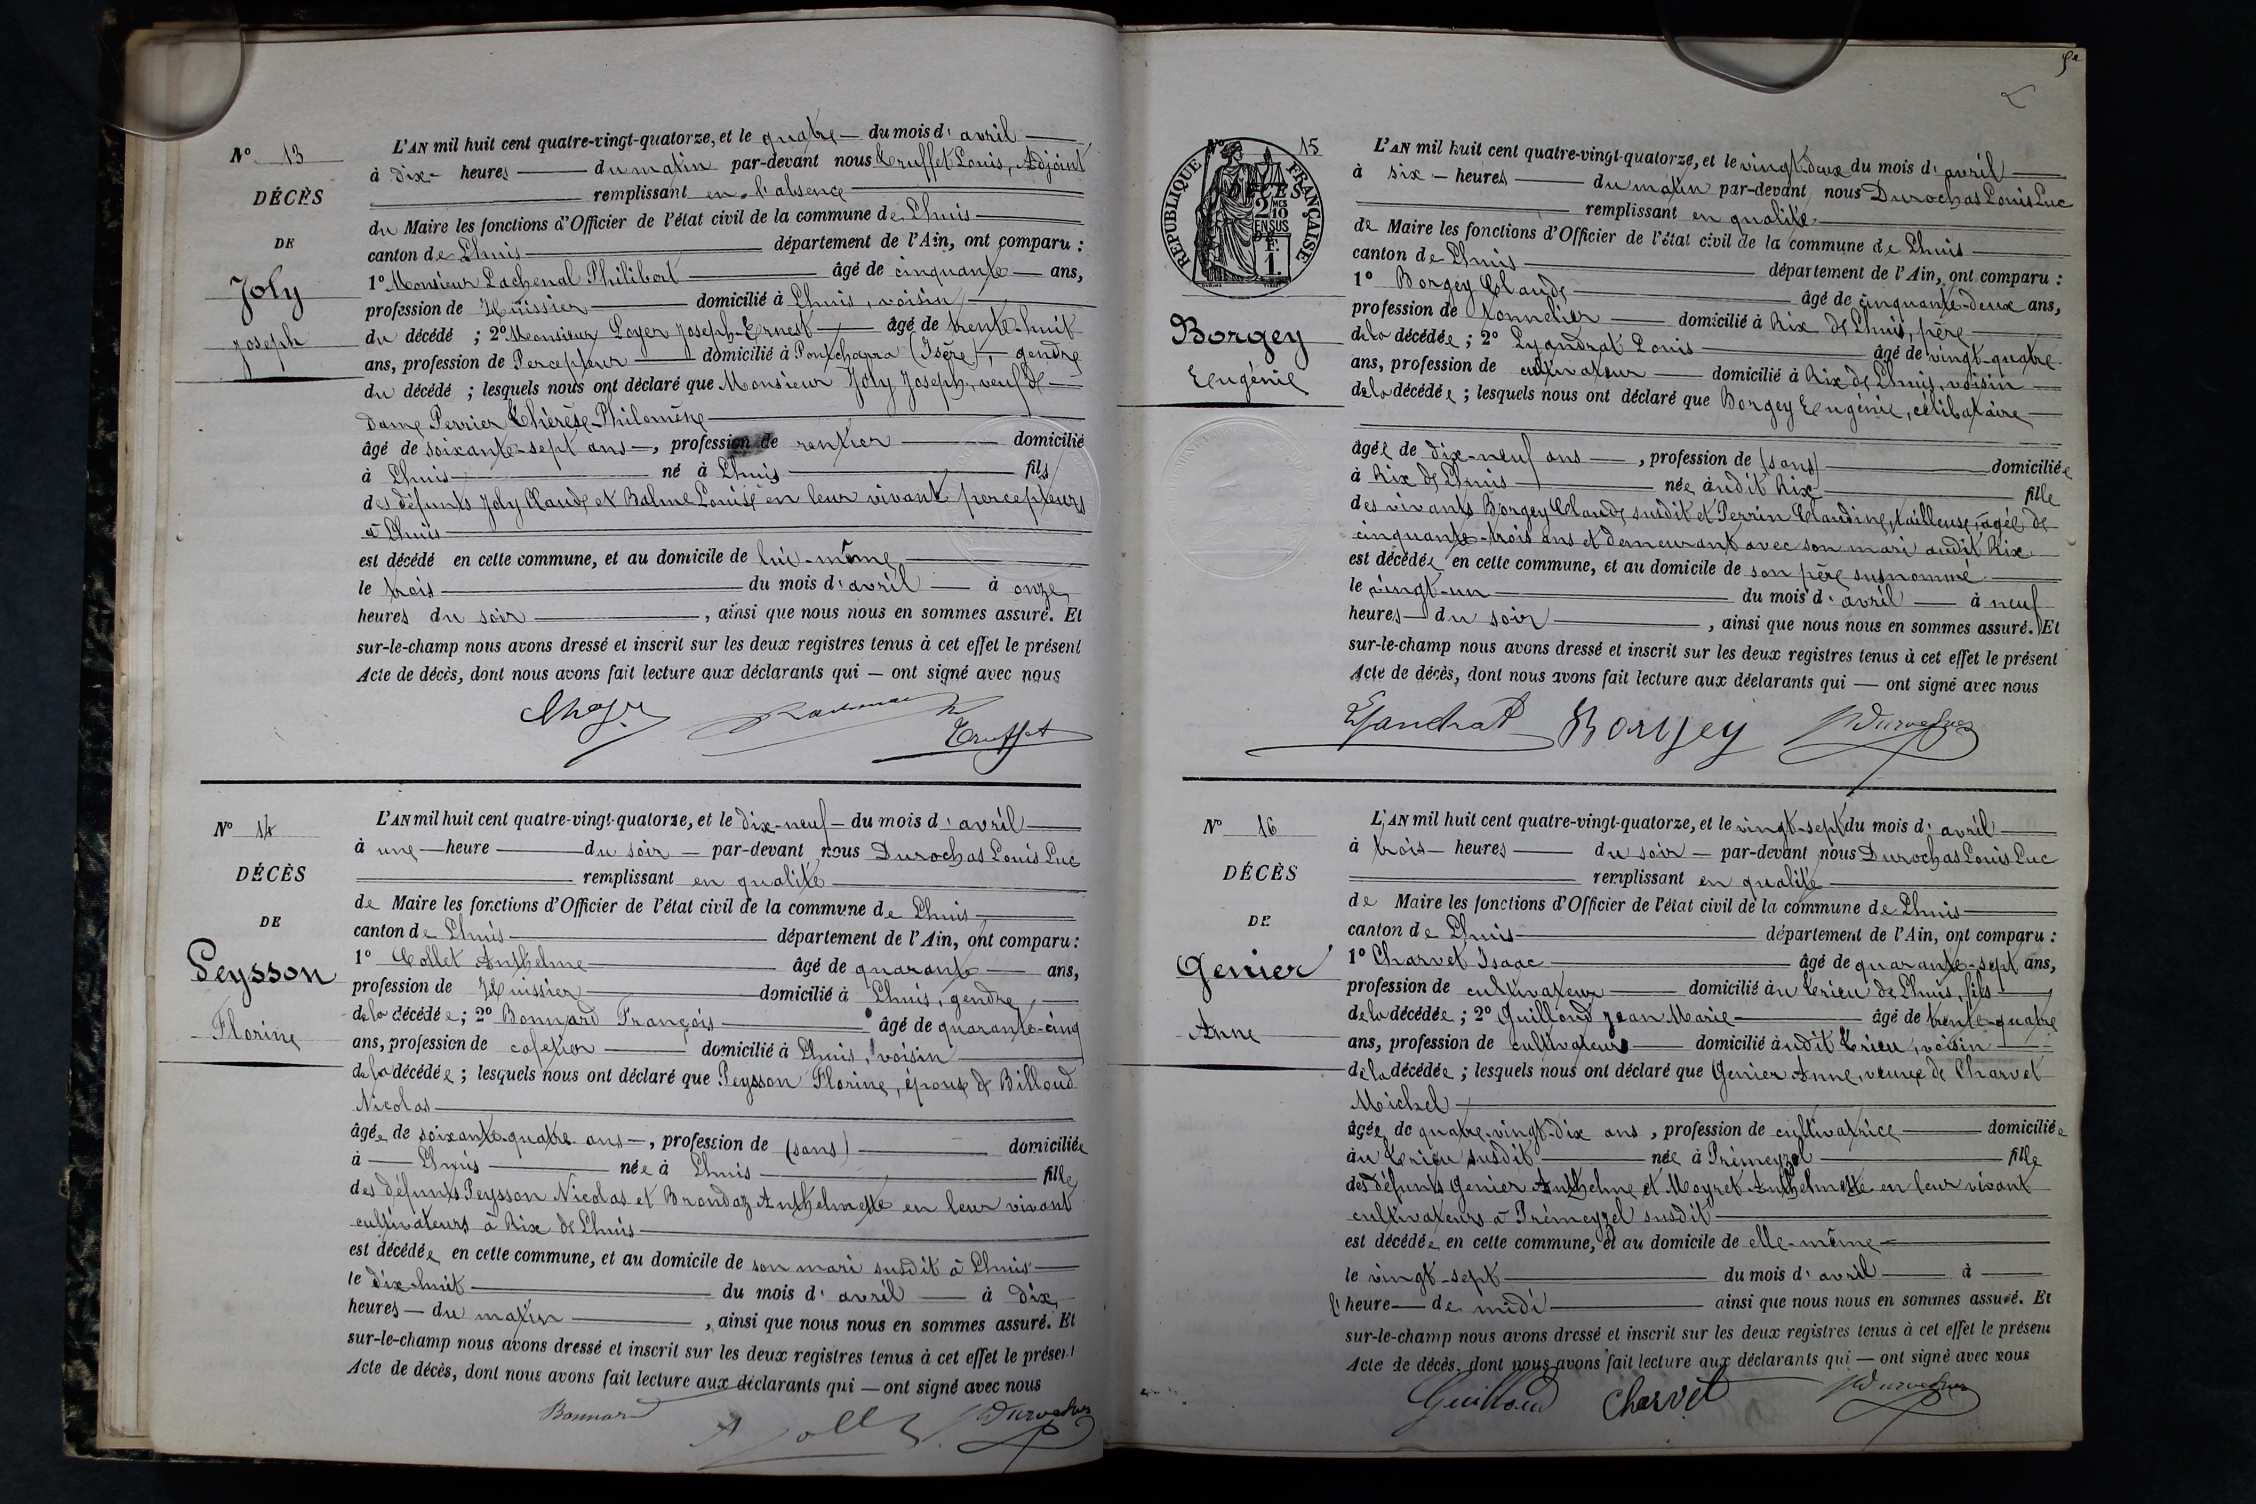 N° 13
DÉCÈS
DE
Joly
Joseph
L'AN mil huit cent quatre-vingt-quatorze, et le quatre — du mois d'avril
à dix — heures — du matin par-devant nous Truffet Louis, Adjoint
remplissant en l'absence
du Maire les fonctions d'Officier de l'état civil de la commune de Lhuis
canton de Lhuis — département de l'Ain, ont comparu :
1° Monsieur Lachenal Philibert — âgé de cinquante — ans,
profession de Huissier — domicilié à Lhuis, voisin
du décédé ; 2° Monsieur Loyer Joseph-Ernest — âgé de trente-huit
ans, profession de Percepteur — domicilié à Pontchapra (Isère), gendre
du décédé ; lesquels nous ont déclaré que Monsieur Joly Joseph, veuf de
Dame Perrier Thérèse-Philomène
âgé de soixante-sept ans —, profession de rentier — domicilié
à Lhuis — né à Lhuis — fils
des défunts Joly Claude et Balme Louise en leur vivant percepteurs
à Lhuis
est décédé en cette commune, et au domicile de lui-même
le trois — du mois d'avril — à onze
heures du soir —, ainsi que nous nous en sommes assuré. Et
sur-le-champ nous avons dressé et inscrit sur les deux registres tenus à cet effet le présent
Acte de décès, dont nous avons fait lecture aux déclarants qui — ont signé avec nous
Truffet
N° 14
DÉCÈS
DE
Peysson
Florine
L'AN mil huit cent quatre-vingt-quatorze, et le dix-neuf — du mois d'avril
à une — heure — du soir — par-devant nous Durochas Louis Luc
remplissant en qualité
de Maire les fonctions d'Officier de l'état civil de la commune de Lhuis
canton de Lhuis — département de l'Ain, ont comparu :
1° Collet Anthelme — âgé de quarante — ans,
profession de Huissier — domicilié à Lhuis, gendre
de la décédée ; 2° Bonnard François — âgé de quarante-cinq
ans, profession de cafetier — domicilié à Lhuis, voisin
de la décédée ; lesquels nous ont déclaré que Peysson Florine, épouse de Billoud
Nicolas
âgée de soixante-quatre ans —, profession de (sans) — domiciliée
à — Lhuis — née à Lhuis — fille
des défunts Peysson Nicolas et Brondaz Anthelmette en leur vivant
cultivateurs à Rix de Lhuis
est décédée en cette commune, et au domicile de son mari susdit à Lhuis
le dix-huit — du mois d'avril — à dix
heures — du matin —, ainsi que nous nous en sommes assuré. Et
sur-le-champ nous avons dressé et inscrit sur les deux registres tenus à cet effet le présent
Acte de décès, dont nous avons fait lecture aux déclarants qui — ont signé avec nous
Bonnard
N° 15
RÉPUBLIQUE FRANÇAISE
DÉCÈS
2 MES
10
EN SUS
DE
1F.
Borgey
Eugénie
L'AN mil huit cent quatre-vingt-quatorze, et le vingt-deux du mois d'avril
à six — heures — du matin par-devant nous Durochas Louis Luc
remplissant en qualité
de Maire les fonctions d'Officier de l'état civil de la commune de Lhuis
canton de Lhuis — département de l'Ain, ont comparu :
1° Borgey Claude — âgé de cinquante-deux ans,
profession de Tonnelier — domicilié à Rix de Lhuis, père
de la décédée ; 2° Lyandrat Louis — âgé de vingt-quatre
ans, profession de cultivateur — domicilié à Rix de Lhuis, voisin
de la décédée ; lesquels nous ont déclaré que Borgey Eugénie, célibataire
âgée de dix-neuf ans —, profession de (sans) — domiciliée
à Rix de Lhuis — née àudit Rix — fille
des vivants Borgey Claude susdit et Perrin Claudine, tailleuse, âgée de
cinquante-trois ans et demeurant avec son mari audit Rix
est décédée en cette commune, et au domicile de son père susnommé
le vingt-un — du mois d'avril — à neuf
heures — du soir —, ainsi que nous nous en sommes assuré. Et
sur-le-champ nous avons dressé et inscrit sur les deux registres tenus à cet effet le présent
Acte de décès, dont nous avons fait lecture aux déclarants qui — ont signé avec nous
Lyandrat Borgey
N° 16
DÉCÈS
DE
Genier
Anne
L'AN mil huit cent quatre-vingt-quatorze, et le vingt-sept du mois d'avril
à trois — heures — du soir — par-devant nous Durochas Louis Luc
remplissant en qualité
de Maire les fonctions d'Officier de l'état civil de la commune de Lhuis
canton de Lhuis — département de l'Ain, ont comparu :
1° Charvet Isaac — âgé de quarante-sept ans,
profession de cultivateur — domicilié àu Crieu de Lhuis, fils
de la décédée ; 2° Guilloud Jean Marie — âgé de trente-quatre
ans, profession de cultivateur — domicilié àudit Crieu, voisin
de la décédée ; lesquels nous ont déclaré que Genier Anne, veuve de Charvet
Michel
âgée de quatre-vingt-dix ans, profession de cultivatrice — domiciliée
àu Crieu susdit — née à Prémeyzel — fille
des défunts Genier Anthelme et Meyret Anthelmette en leur vivant
cultivateurs à Prémeyzel susdit
est décédée en cette commune, et au domicile de elle-même
le vingt-sept — du mois d'avril — à
l'heure — de midi — ainsi que nous nous en sommes assuré. Et
sur-le-champ nous avons dressé et inscrit sur les deux registres tenus à cet effet le présent
Acte de décès, dont nous avons fait lecture aux déclarants qui — ont signé avec nous
Guilloud Charvet